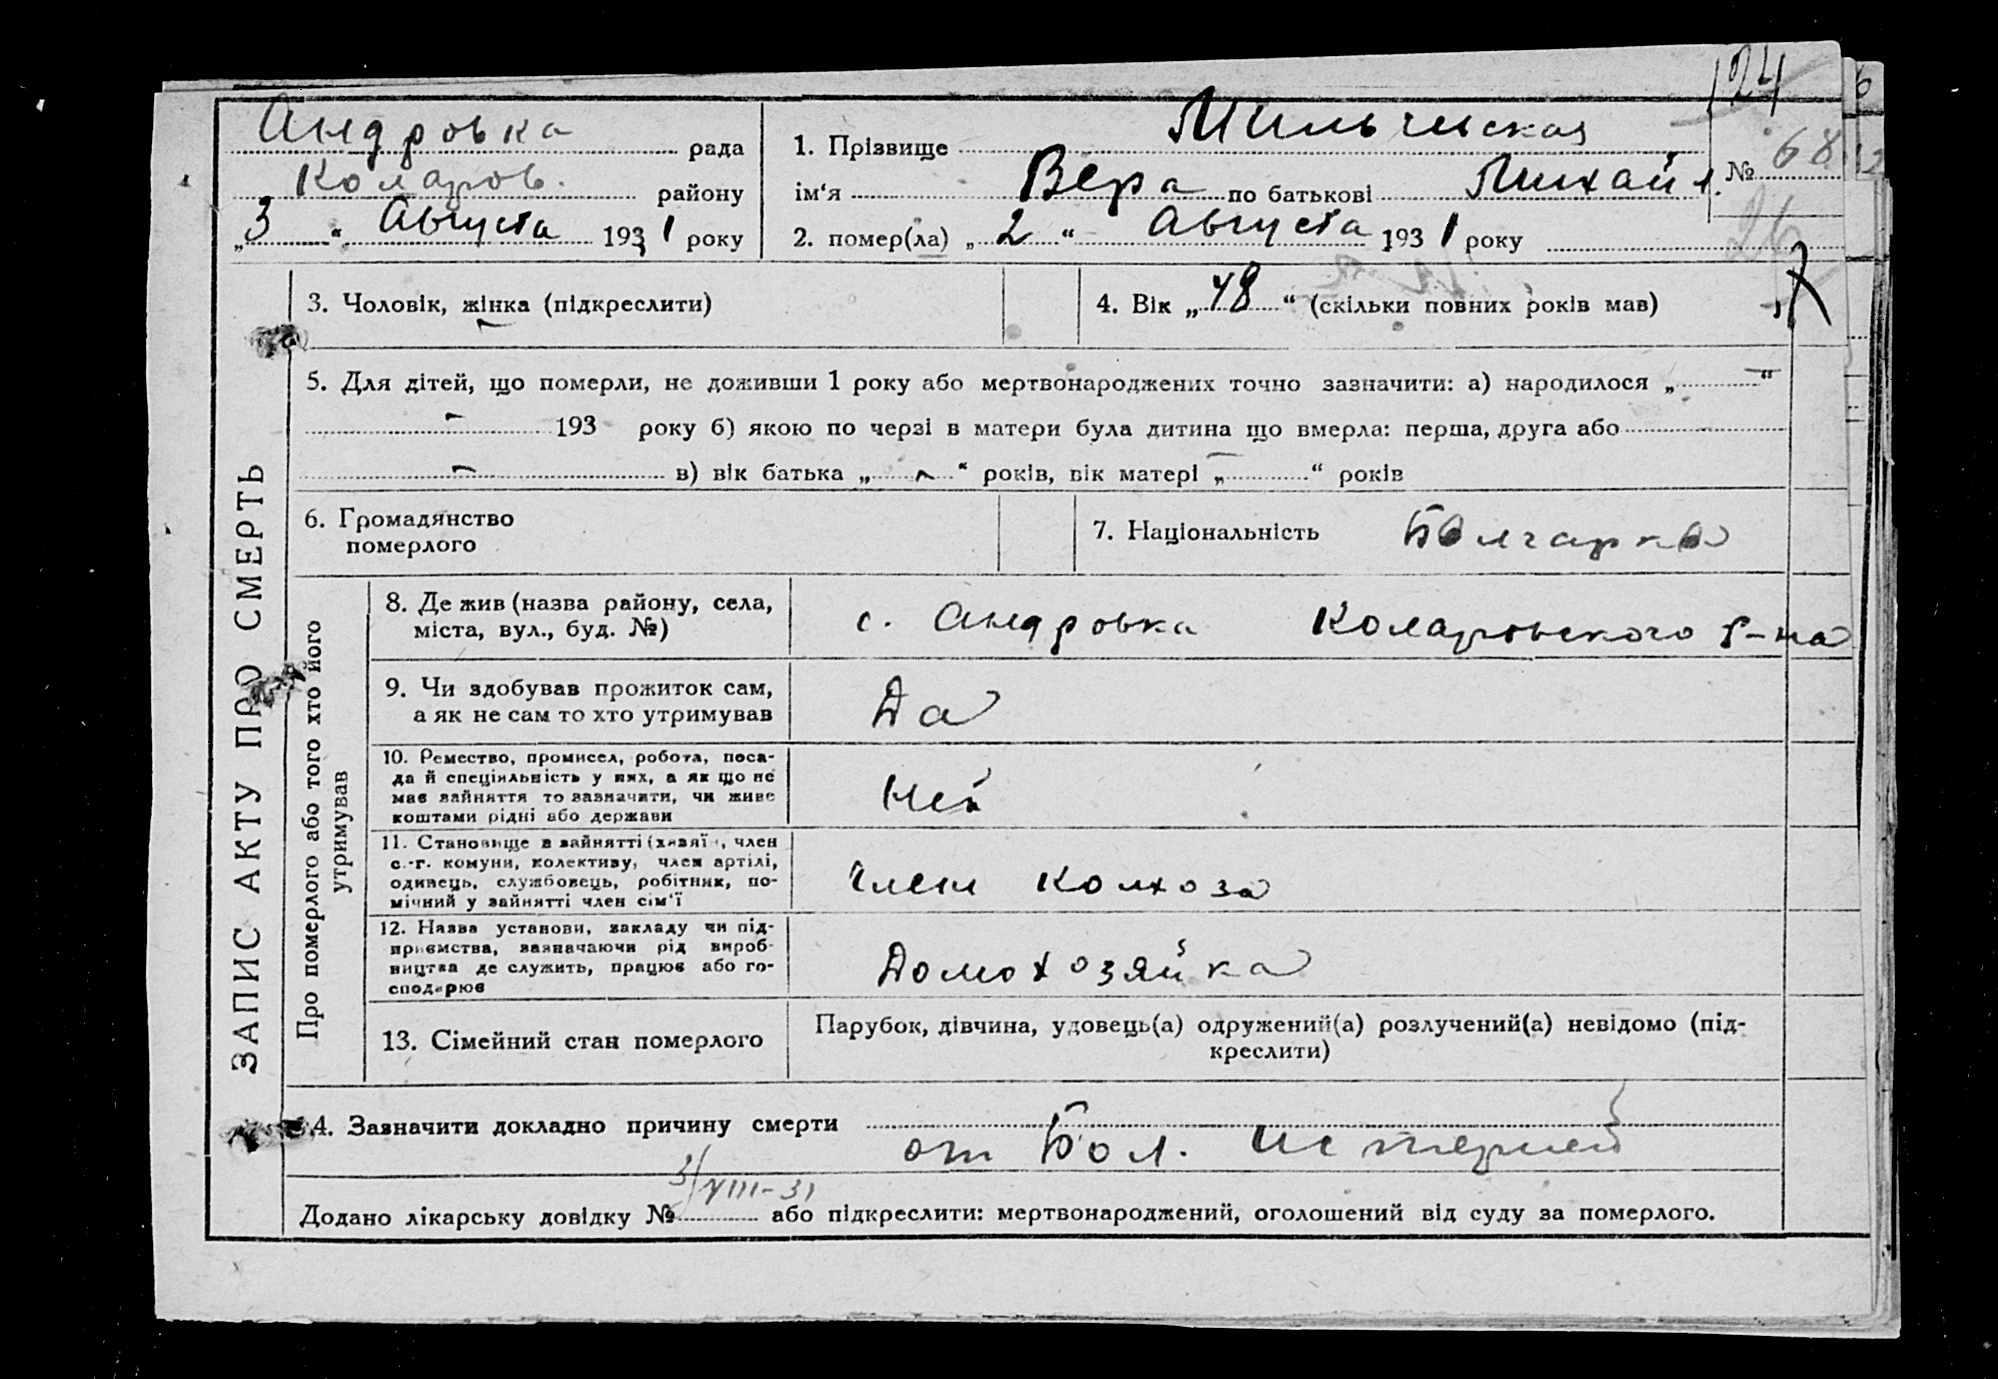 124
Андровка рада
Коларов. району
„3“ Августа 1931 року
1. Прізвище Мильчевская
ім‘я Вера по батькові Михайл.
№ 68
26
2. помер(ла) „2“ Августа 1931 року
3. Чоловік, жінка (підкреслити)
4. Вік „48“ (скільки повних років мав)
5. Для дітей, що померли, не доживши 1 року або мертвонароджених точно зазначити: а) народилося „ “
– 193 року б) якою по черзі в матери була дитина що вмерла: перша, друга або
– в) вік батька „ “ років, вік матері „ “ років
6. Громадянство
померлого
7. Національність Болгарка
ЗАПИС АКТУ ПРО СМЕРТЬ
Про померлого або того хто його
утримував
8. Де жив (назва району, села,
міста, вул., буд. №)
с. Андровка Коларовского р-на
9. Чи здобував прожиток сам,
а як не сам то хто утримував
Да
10. Ремество, промисел, робота, поса-
да й спеціяльність у них, а як що не
має зайняття то зазначити, чи живе
коштами рідні або держави
Нет
11. Становище в зайнятті (хазяїн, член
с.-г. комуни, колективу, член артілі,
одинець, службовець, робітник, по-
мічний у зайнятті член сім‘ї
Член колхоза
12. Назва установи, закладу чи під-
приємства, зазначаючи рід вироб-
ництва де служить, працює або го-
сподарює
Домохозяйка
13. Сімейний стан померлого
Парубок, дівчина, удовець(а) одружений(а) розлучений(а) невідомо (під-
креслити)
14. Зазначити докладно причину смерти
от бол. истерией
3/VIII-31
Додано лікарську довідку № або підкреслити: мертвонароджений, оголошений від суду за померлого.